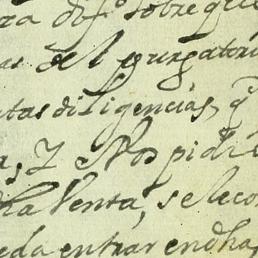 ra dif.º sobre que
as del purgatori
ntas diligencias, q̃
a, Y Nos pidi
dha Venta, se le co
eda entrar en dha,